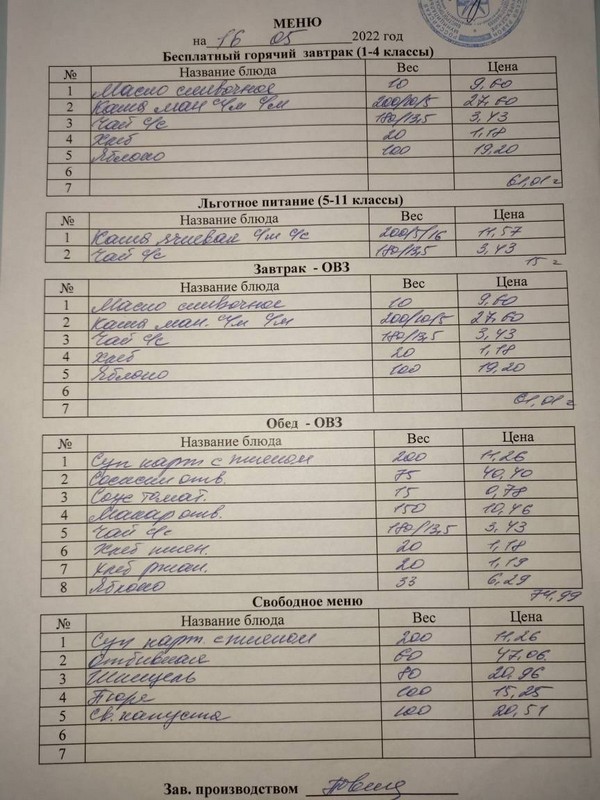 МЕНЮ
на 16 05 2022 год
Бесплатный горячий завтрак (1-4 классы)
№ Название блюда Вес Цена
1 Масло сливочное 10 9,60
2 Каша ман с/м с/м 200/20/5 27,60
3 Чай с/с 180/13,5 3,43
4 Хлеб 20 1,18
5 Яблоко 100 19,20
6
7 61,01
Льготное питание (5-11 классы)
№ Название блюда Вес Цена
1 Каша ячневая с/м с/с 200/5/16 11,57
2 Чай с/с 180/13,5 3,43
15
Завтрак - ОВЗ
№ Название блюда Вес Цена
1 Масло сливочное 10 9,60
2 Каша ман. с/м с/м 200/20/5 27,60
3 Чай с/с 180/13,5 3,43
4 Хлеб 20 1,18
5 Яблоко 100 19,20
6
7 61,01
Обед - ОВЗ
№ Название блюда Вес Цена
1 Суп карт с пшеном 200 11,26
2 Сосиски отв. 75 40,40
3 Соус томат. 15 0,78
4 Макар отв. 150 10,46
5 Чай с/с 180/13,5 3,43
6 Хлеб пшен. 20 1,18
7 Хлеб ржан. 20 1,19
8 Яблоко 33 6,29
74,99
Свободное меню
№ Название блюда Вес Цена
1 Суп карт. с пшеном 200 11,26
2 Отбивная 60 47,06
3 Шницель 80 20,96
4 Пюре 100 15,25
5 Св. капуста 100 20,51
6
7
Зав. производством